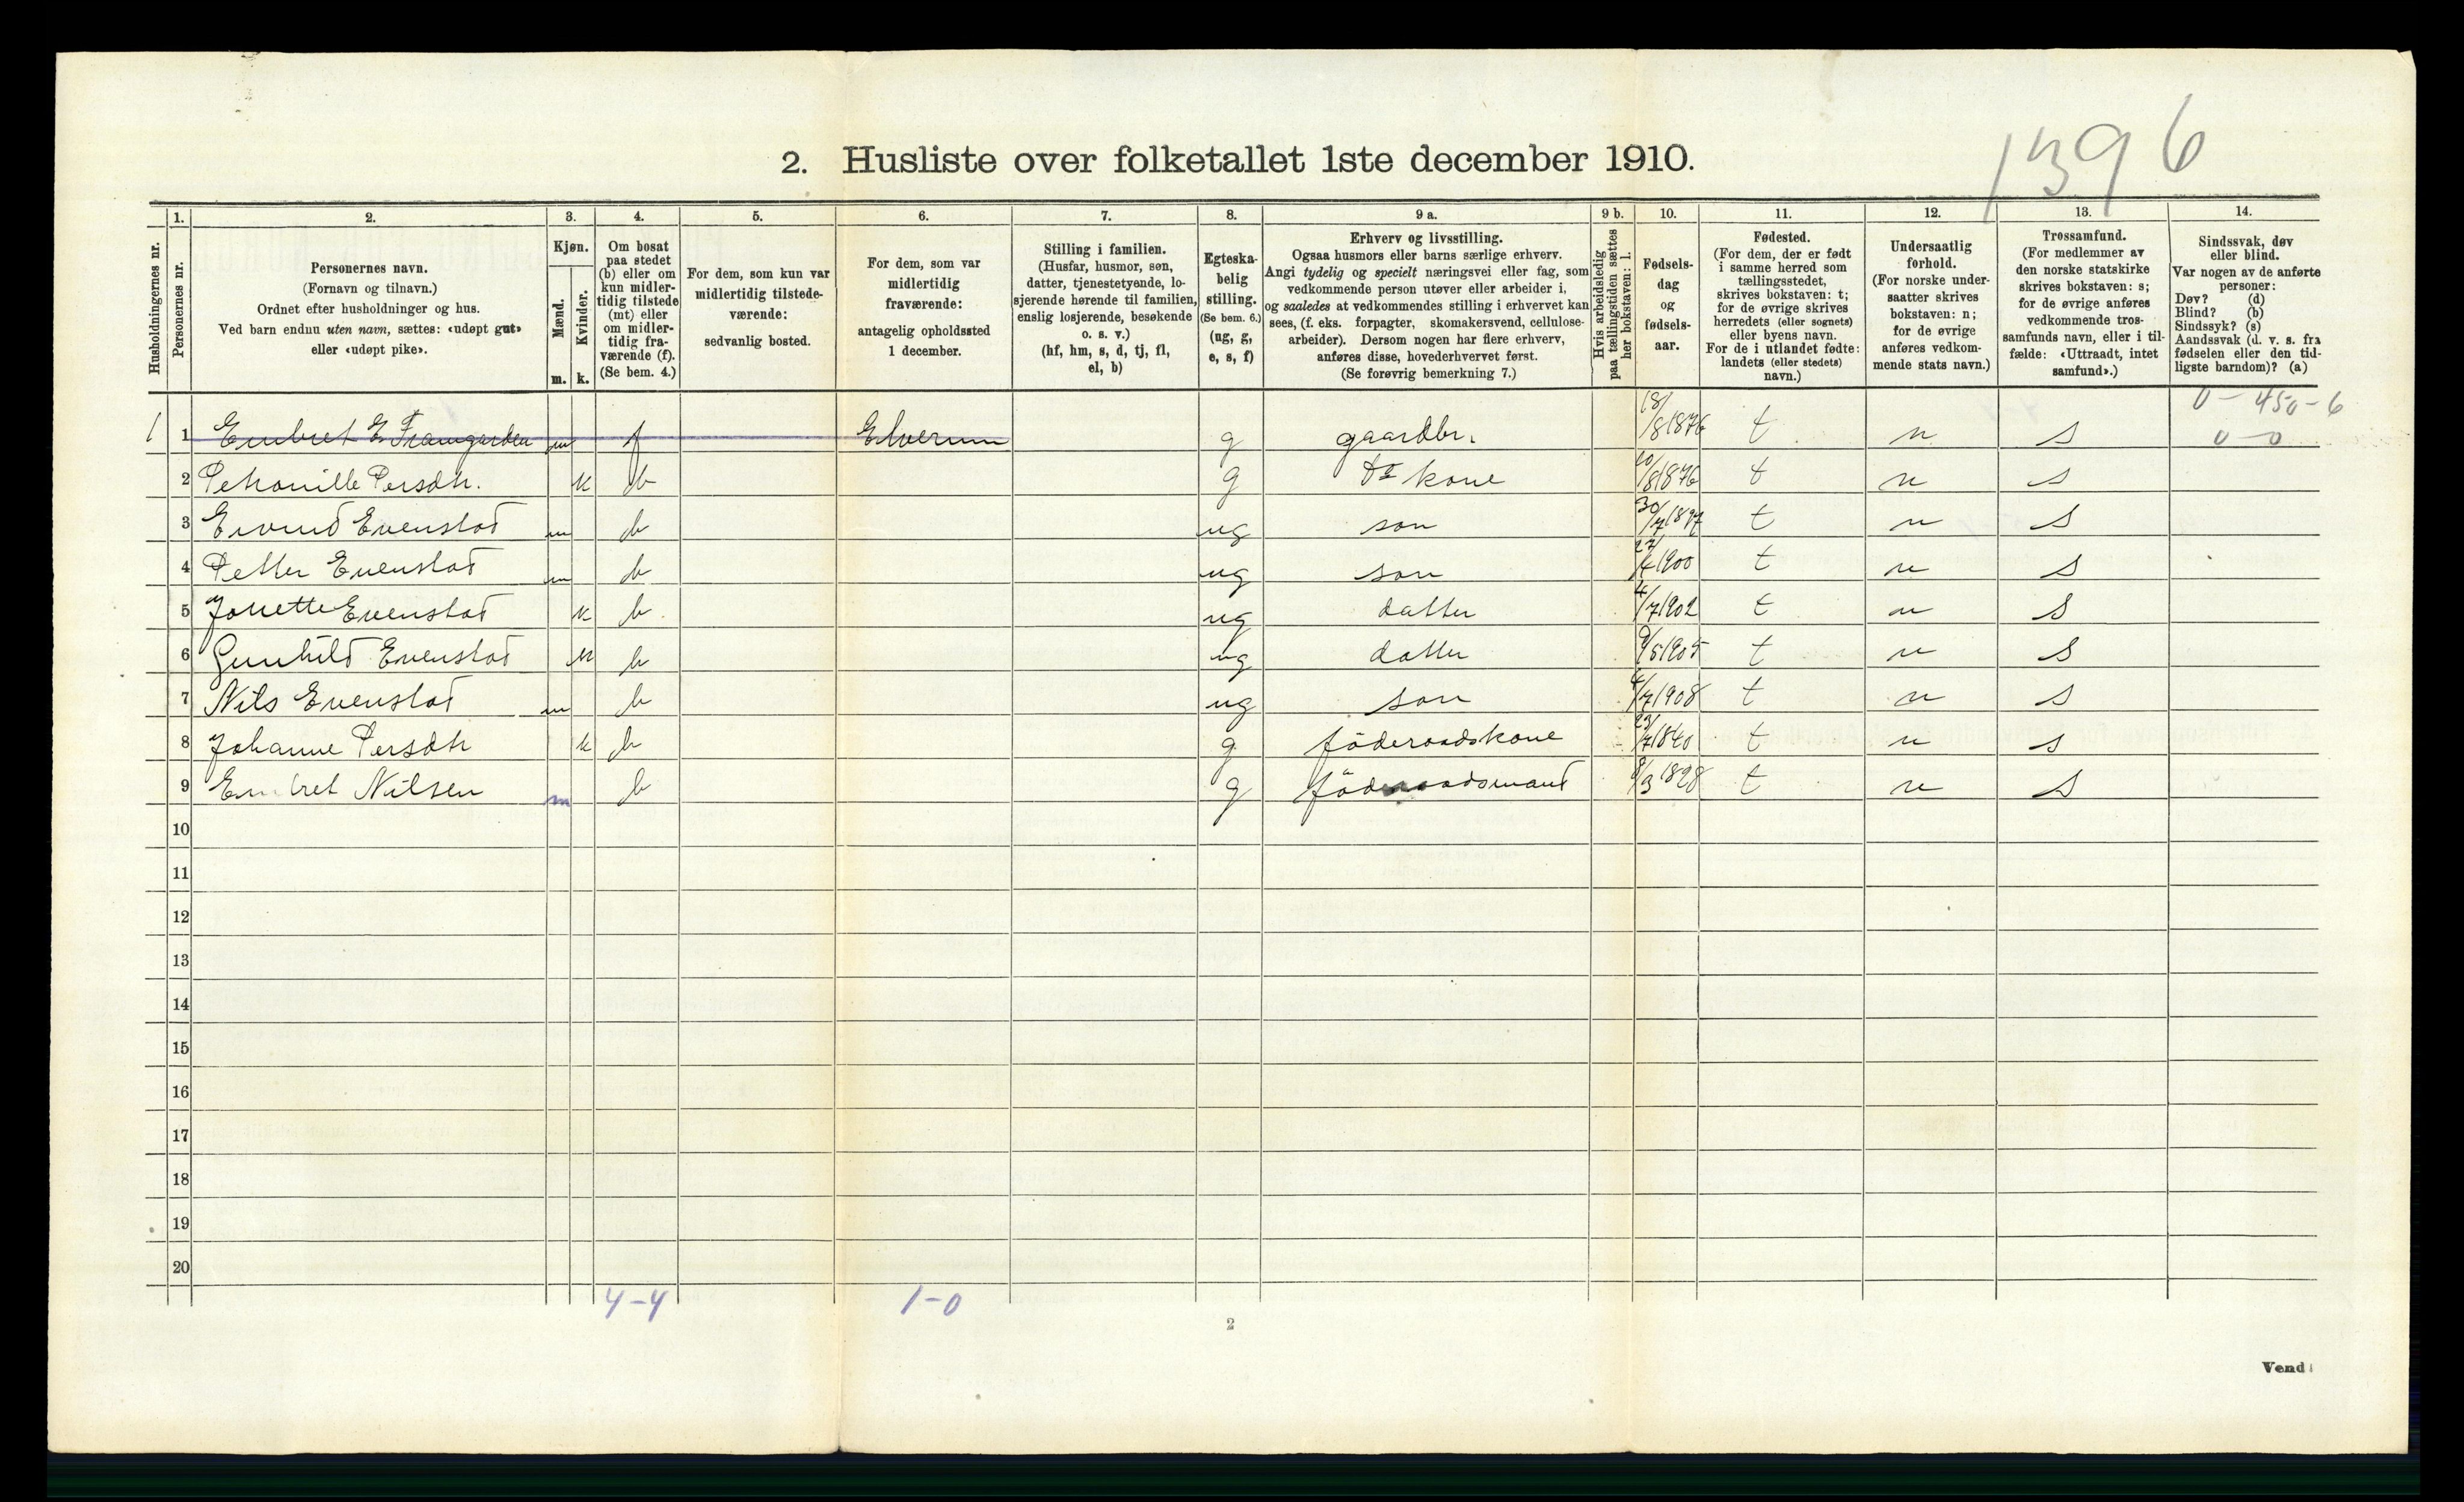 1396
2. Husliste over folketallet 1ste december 1910.
Husholdningernes nr.
1. Personernes nr.
2. Personernes navn.
(Fornavn og tilnavn.)
Ordnet efter husholdninger og hus.
Ved barn endnu uten navn, sættes: «udøpt gut»
eller «udøpt pike».
3. Kjøn.
Mænd. m.
Kvinder. k.
4. Om bosat
paa stedet
(b) eller om
kun midler-
tidig tilstede
(mt) eller
om midler-
tidig fra-
værende (f).
(Se bem. 4.)
5. For dem, som kun var
midlertidig tilstede-
værende:
sedvanlig bosted.
6. For dem, som var
midlertidig
fraværende:
antagelig opholdssted
1 december.
7. Stilling i familien.
(Husfar, husmor, søn,
datter, tjenestetyende, lo-
sjerende hørende til familien,
enslig losjerende, besøkende
o. s. v.)
(hf, hm, s, d, tj, fl,
el, b)
8. Egteska-
belig
stilling.
(Se bem. 6.)
(ug, g,
e, s, f)
9 a. Erhverv og livsstilling.
Ogsaa husmors eller barns særlige erhverv.
Angi tydelig og specielt næringsvei eller fag, som
vedkommende person utøver eller arbeider i,
og saaledes at vedkommendes stilling i erhvervet kan
sees, (f. eks. forpagter, skomakersvend, cellulose-
arbeider). Dersom nogen har flere erhverv,
anføres disse, hovederhvervet først.
(Se forøvrig bemerkning 7.)
9 b. Hvis arbeidsledig
paa tællingstiden sættes
her bokstaven: l.
10. Fødsels-
dag
og
fødsels-
aar.
11. Fødested.
(For dem, der er født
i samme herred som
tællingsstedet,
skrives bokstaven: t;
for de øvrige skrives
herredets (eller sognets)
eller byens navn.
For de i utlandet fødte:
landets (eller stedets)
navn.)
12. Undersaatlig
forhold.
(For norske under-
saatter skrives
bokstaven: n;
for de øvrige
anføres vedkom-
mende stats navn.)
13. Trossamfund.
(For medlemmer av
den norske statskirke
skrives bokstaven: s;
for de øvrige anføres
vedkommende tros-
samfunds navn, eller i til-
fælde: «Uttraadt, intet
samfund».)
14. Sindssvak, døv
eller blind.
Var nogen av de anførte
personer:
Døv? (d)
Blind? (b)
Sindssyk? (s)
Aandssvak (d. v. s. fra
fødselen eller den tid-
ligste barndom)? (a)
0 - 450 - 6
1 1 Embret E Framgarden m f Elverum g gaardbr. 18/8 1876 t n s 0-0
2 Petronille Persdtr. k b g do kone 20/8 1876 t n s
3 Eivind Evenstad m b ug søn 30/7 1897 t n s
4 Petter Evenstad m b ug søn 27/4 1900 t n s
5 Jonette Evenstad k b ug datter 4/7 1902 t n s
6 Gunhild Evenstad k b ug datter 9/5 1905 t n s
7 Nils Evenstad m b ug søn 4/7 1908 t n s
8 Johanne Persdtr k b g föderaadskone 23/7 1840 t n s
9 Embret Nilsen m b g föderaadsmand 8/3 1828 t n s
10
11
12
13
14
15
16
17
18
19
20
4-4 1-0
2
Vend!